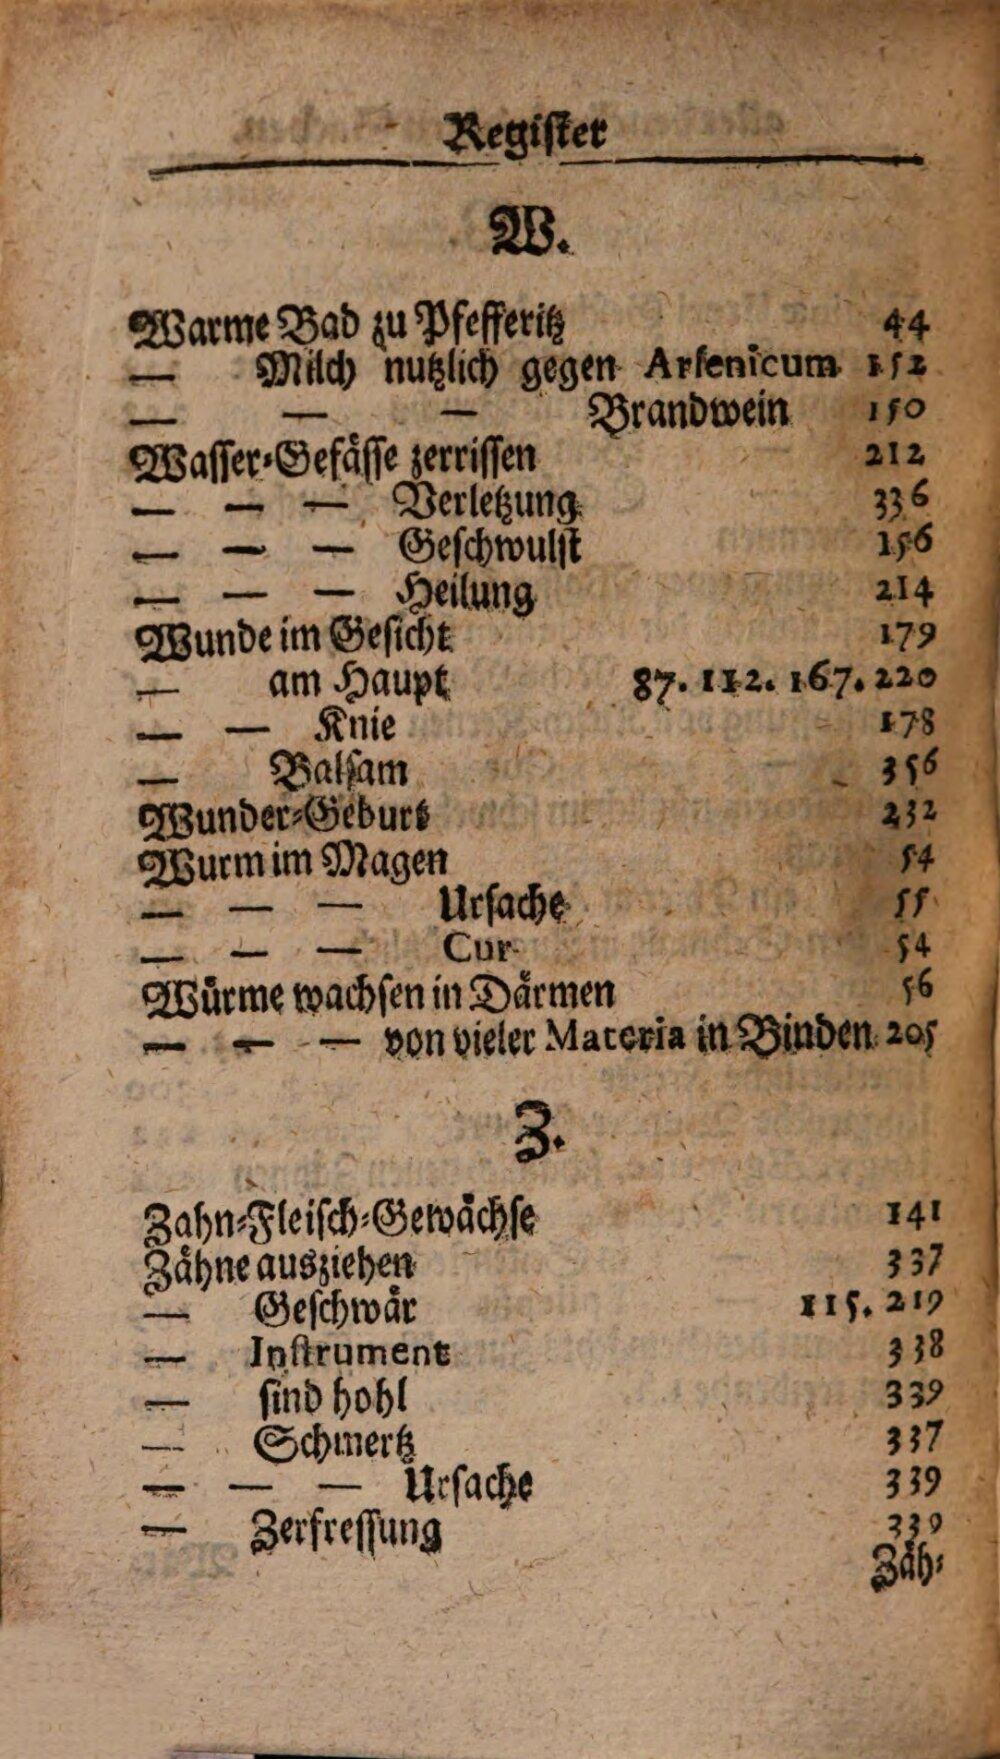 Register
W.
Warme Bad zu Pfefferitz 44
— Milch nutzlich gegen Arſenicum 152
— — — Brandwein 150
Waſſer-Gefäſſe zerriſſen 212
— — — Verletzung 336
— — — Geſchwulſt 156
— — — Heilung 214
Wunde im Geſicht 179
— am Haupt 87. 112. 167. 220
— — Knie 178
— Balſam 356
Wunder-Geburt 232
Wurm im Magen 54
— — — Urſache 55
— — — Cur 54
Würme wachſen in Därmen 56
— — — von vieler Materia in Binden 205
Z.
Zahn-Fleiſch-Gewächſe 141
Zähne ausziehen 337
— Geſchwär 115. 219
— Inſtrument 338
— ſind hohl 339
— Schmertz 337
— — — Urſache 339
— Zerfreſſung 339
Zäh-